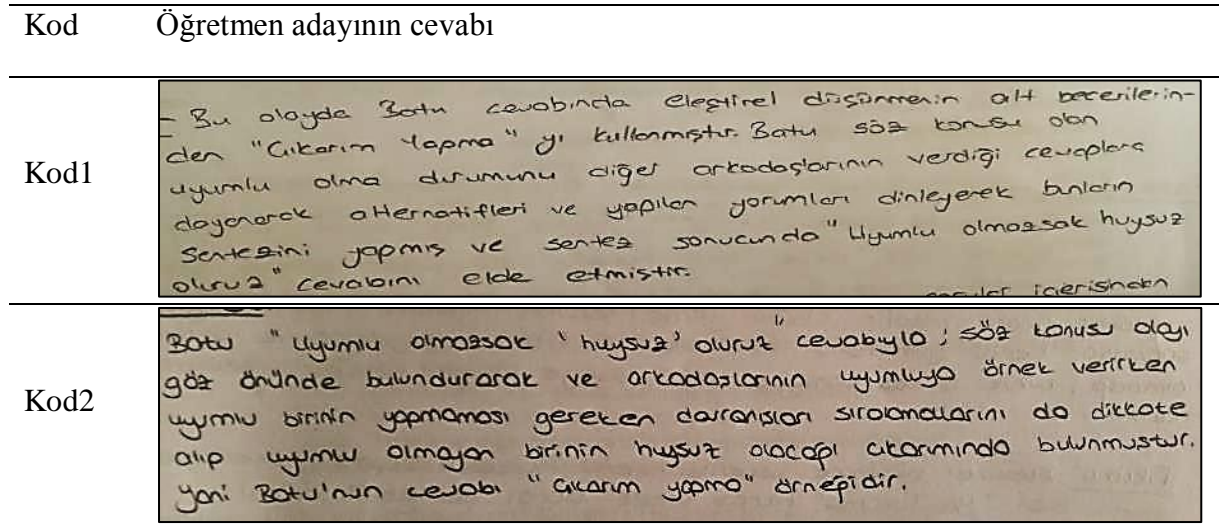 Kod Öğretmen adayının cevabı
Kod1
- Bu olayda Batu cevabında eleştirel düşünmenin alt becerilerin-
den "Çıkarım Yapma" yı kullanmıştır. Batu söz konusu olan
uyumlu olma durumunu diğer arkadaşlarının verdiği cevaplara
dayanarak alternatifleri ve yapılan yorumları dinleyerek bunların
sentezini yapmış ve sentez sonucunda "Uyumlu olmazsak huysuz
oluruz" cevabını elde etmiştir.
içerisinden
Kod2
Batu "Uyumlu olmazsak 'huysuz' oluruz" cevabıyla; söz konusu olayı
göz önünde bulundurarak ve arkadaşlarının uyumluya örnek verirken
uyumlu birinin yapmaması gereken davranışları sıralamalarını da dikkate
alıp uyumlu olmayan birinin huysuz olacağı çıkarımında bulunmuştur.
Yani Batu'nun cevabı "Çıkarım yapma" örneğidir.